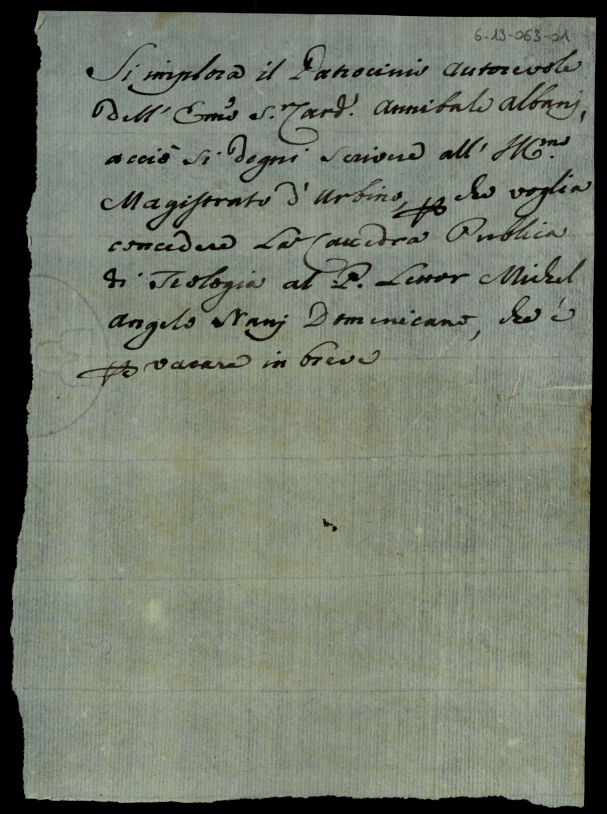 6-13-063-01
Si implora il Patrocinio autorevole
dell' Emo S.r Card.l Annibale Albanj,
acciò si degni scrivere all' Ill.mo
Magistrato d'Urbino, che voglia
concedere La Cattedra Publica
di Teologia al P. Lettor Michel
Angelo Nanj Domenicano, che è
vacare in breve